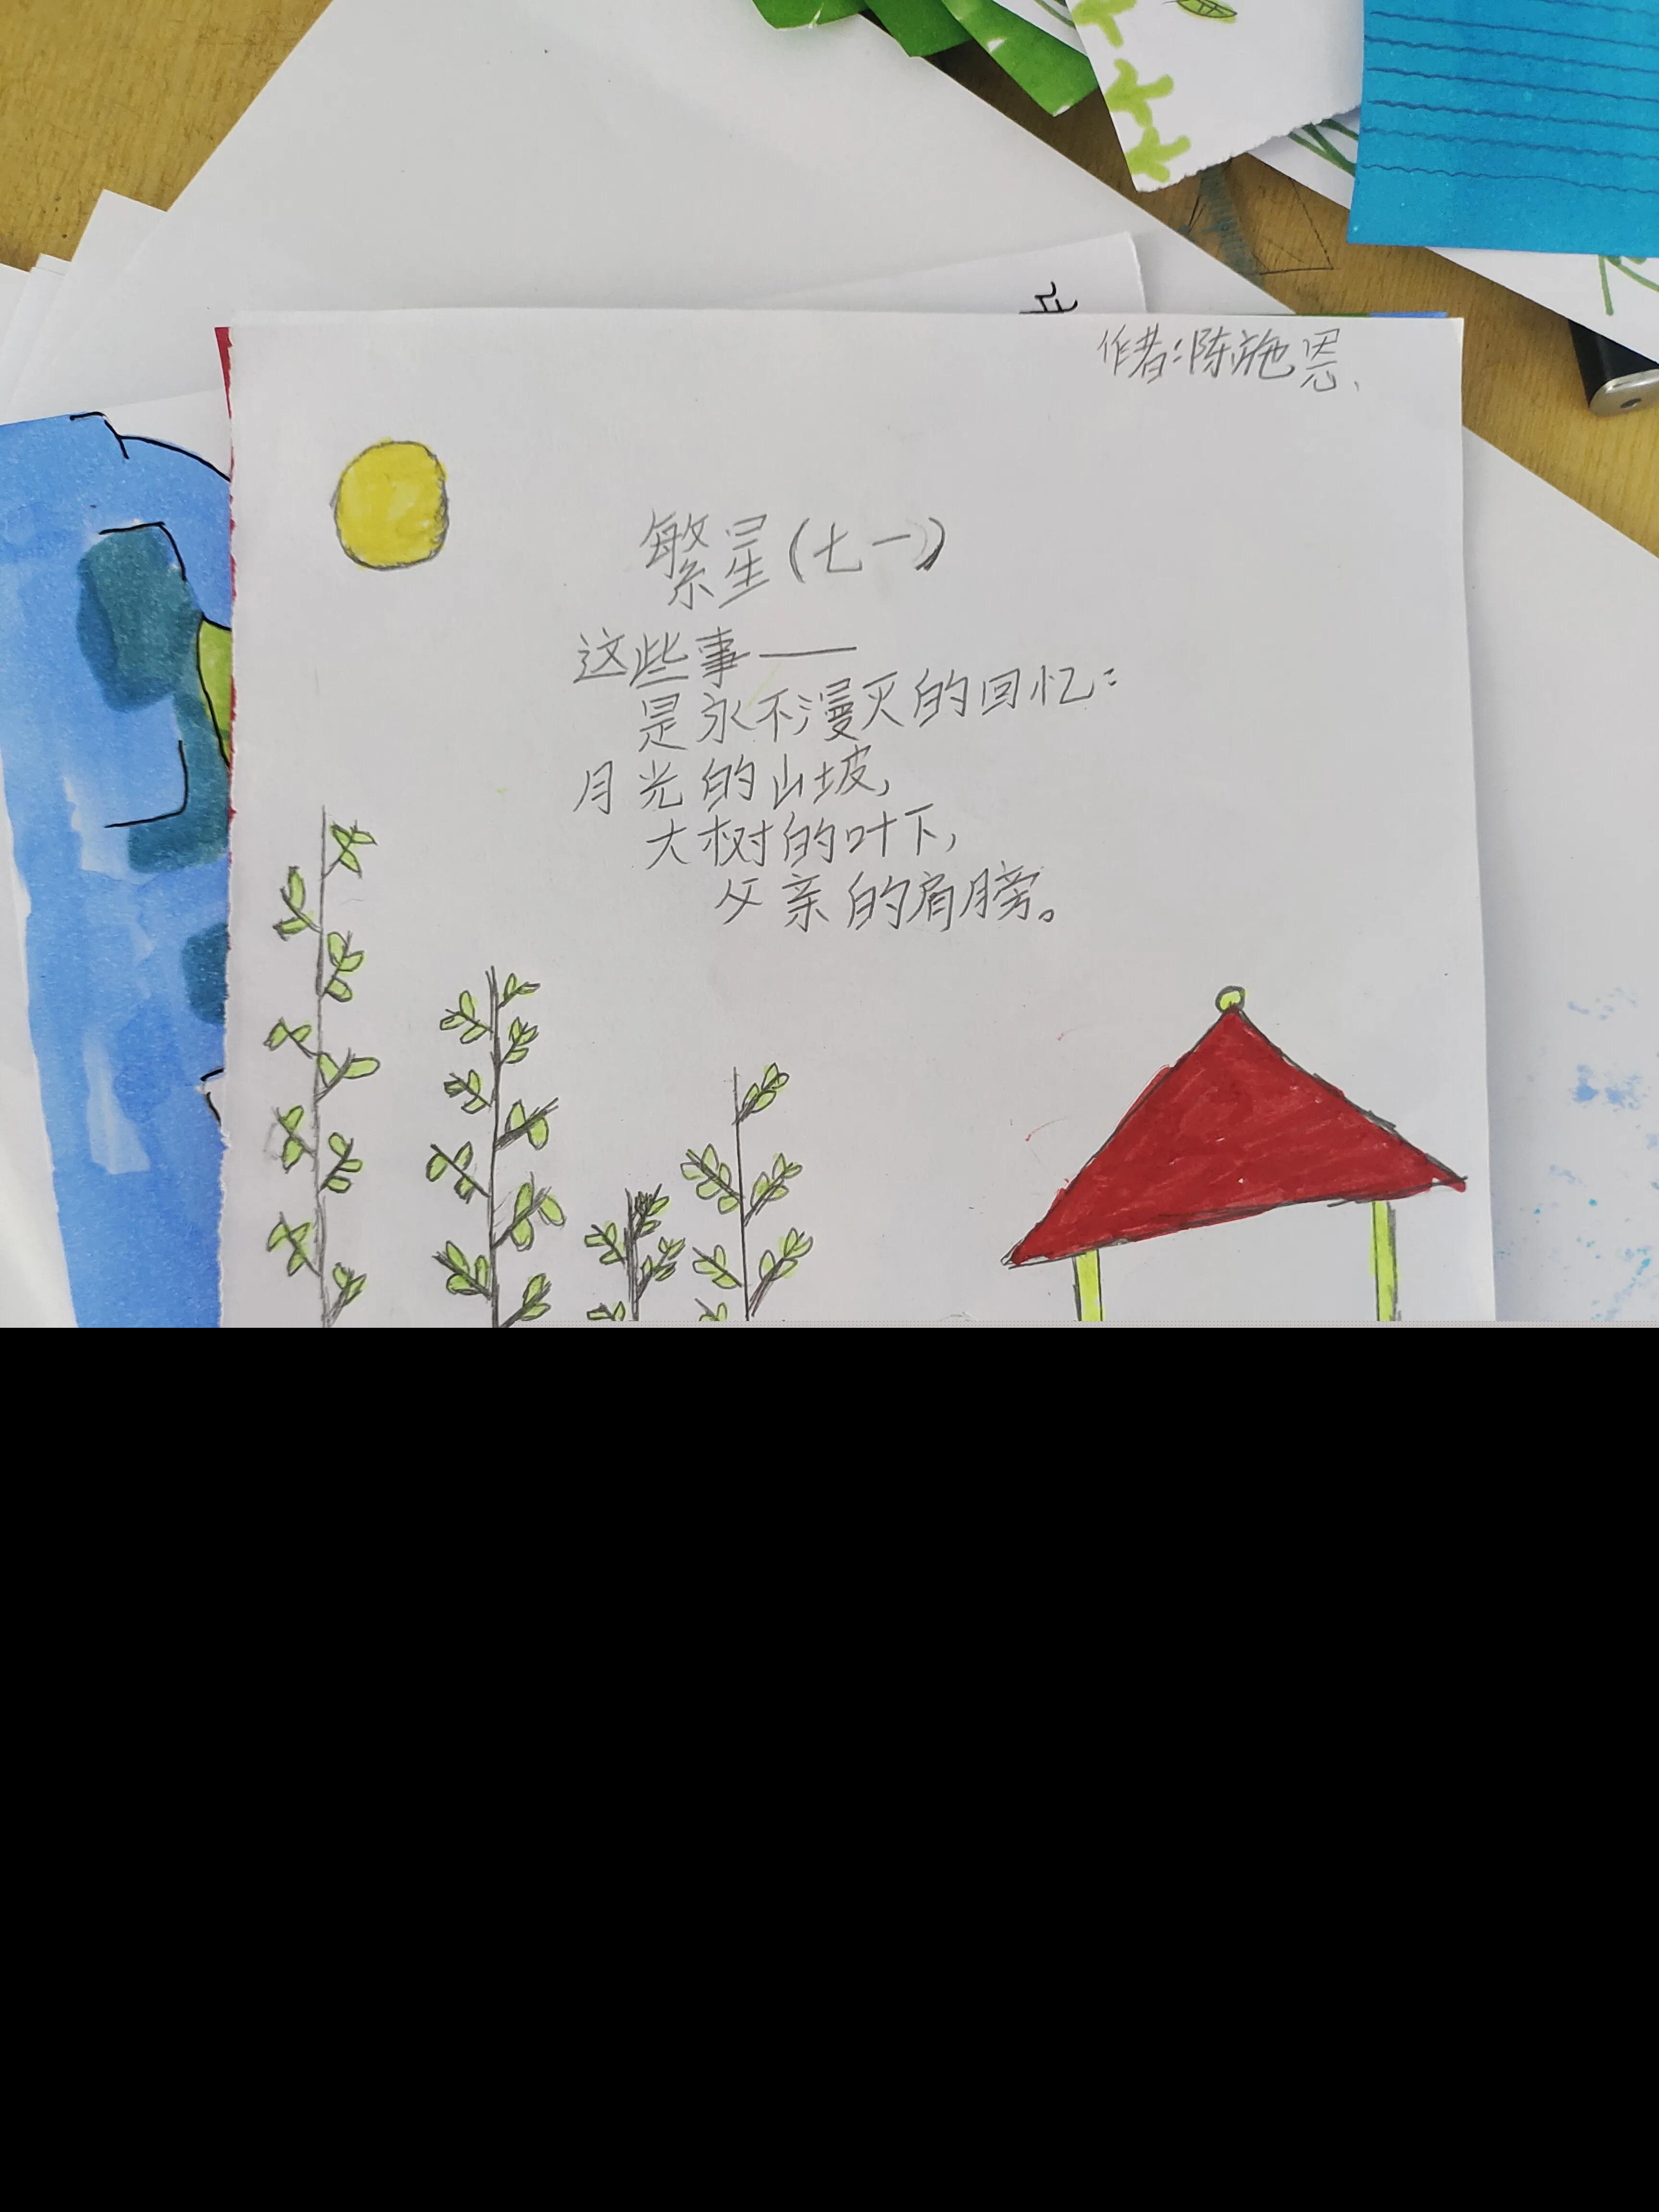 作者:陈施恩、
繁星(七一)
这些事——
是永不漫灭的回忆:
月光的山坡,
大树的叶下,
父亲的肩膀。